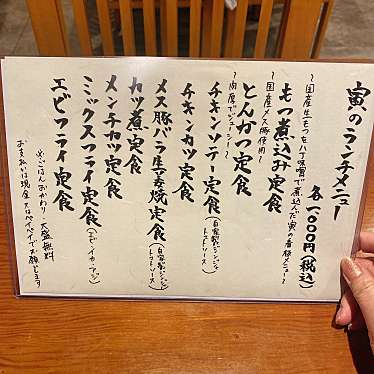 寅のランチメニュー
各1000円(税込)
~国産生もつを八丁味噌で煮込んだ寅の看板メニュー~
もつ煮込み定食
~国産メス豚使用~
とんかつ定食
~肉厚でジューシー~
チキンソテー定食(自家製ジンジャートマトソース)
チキンカツ定食
メス豚バラ生姜焼定食(自家製ジンジャートマトソース)
カツ煮定食
メンチカツ定食
ミックスフライ定食(エビ・イカ・アジ)
エビフライ定食
※ごはんおかわり・大盛無料
お支払いは現金又はペイペイでお願いします